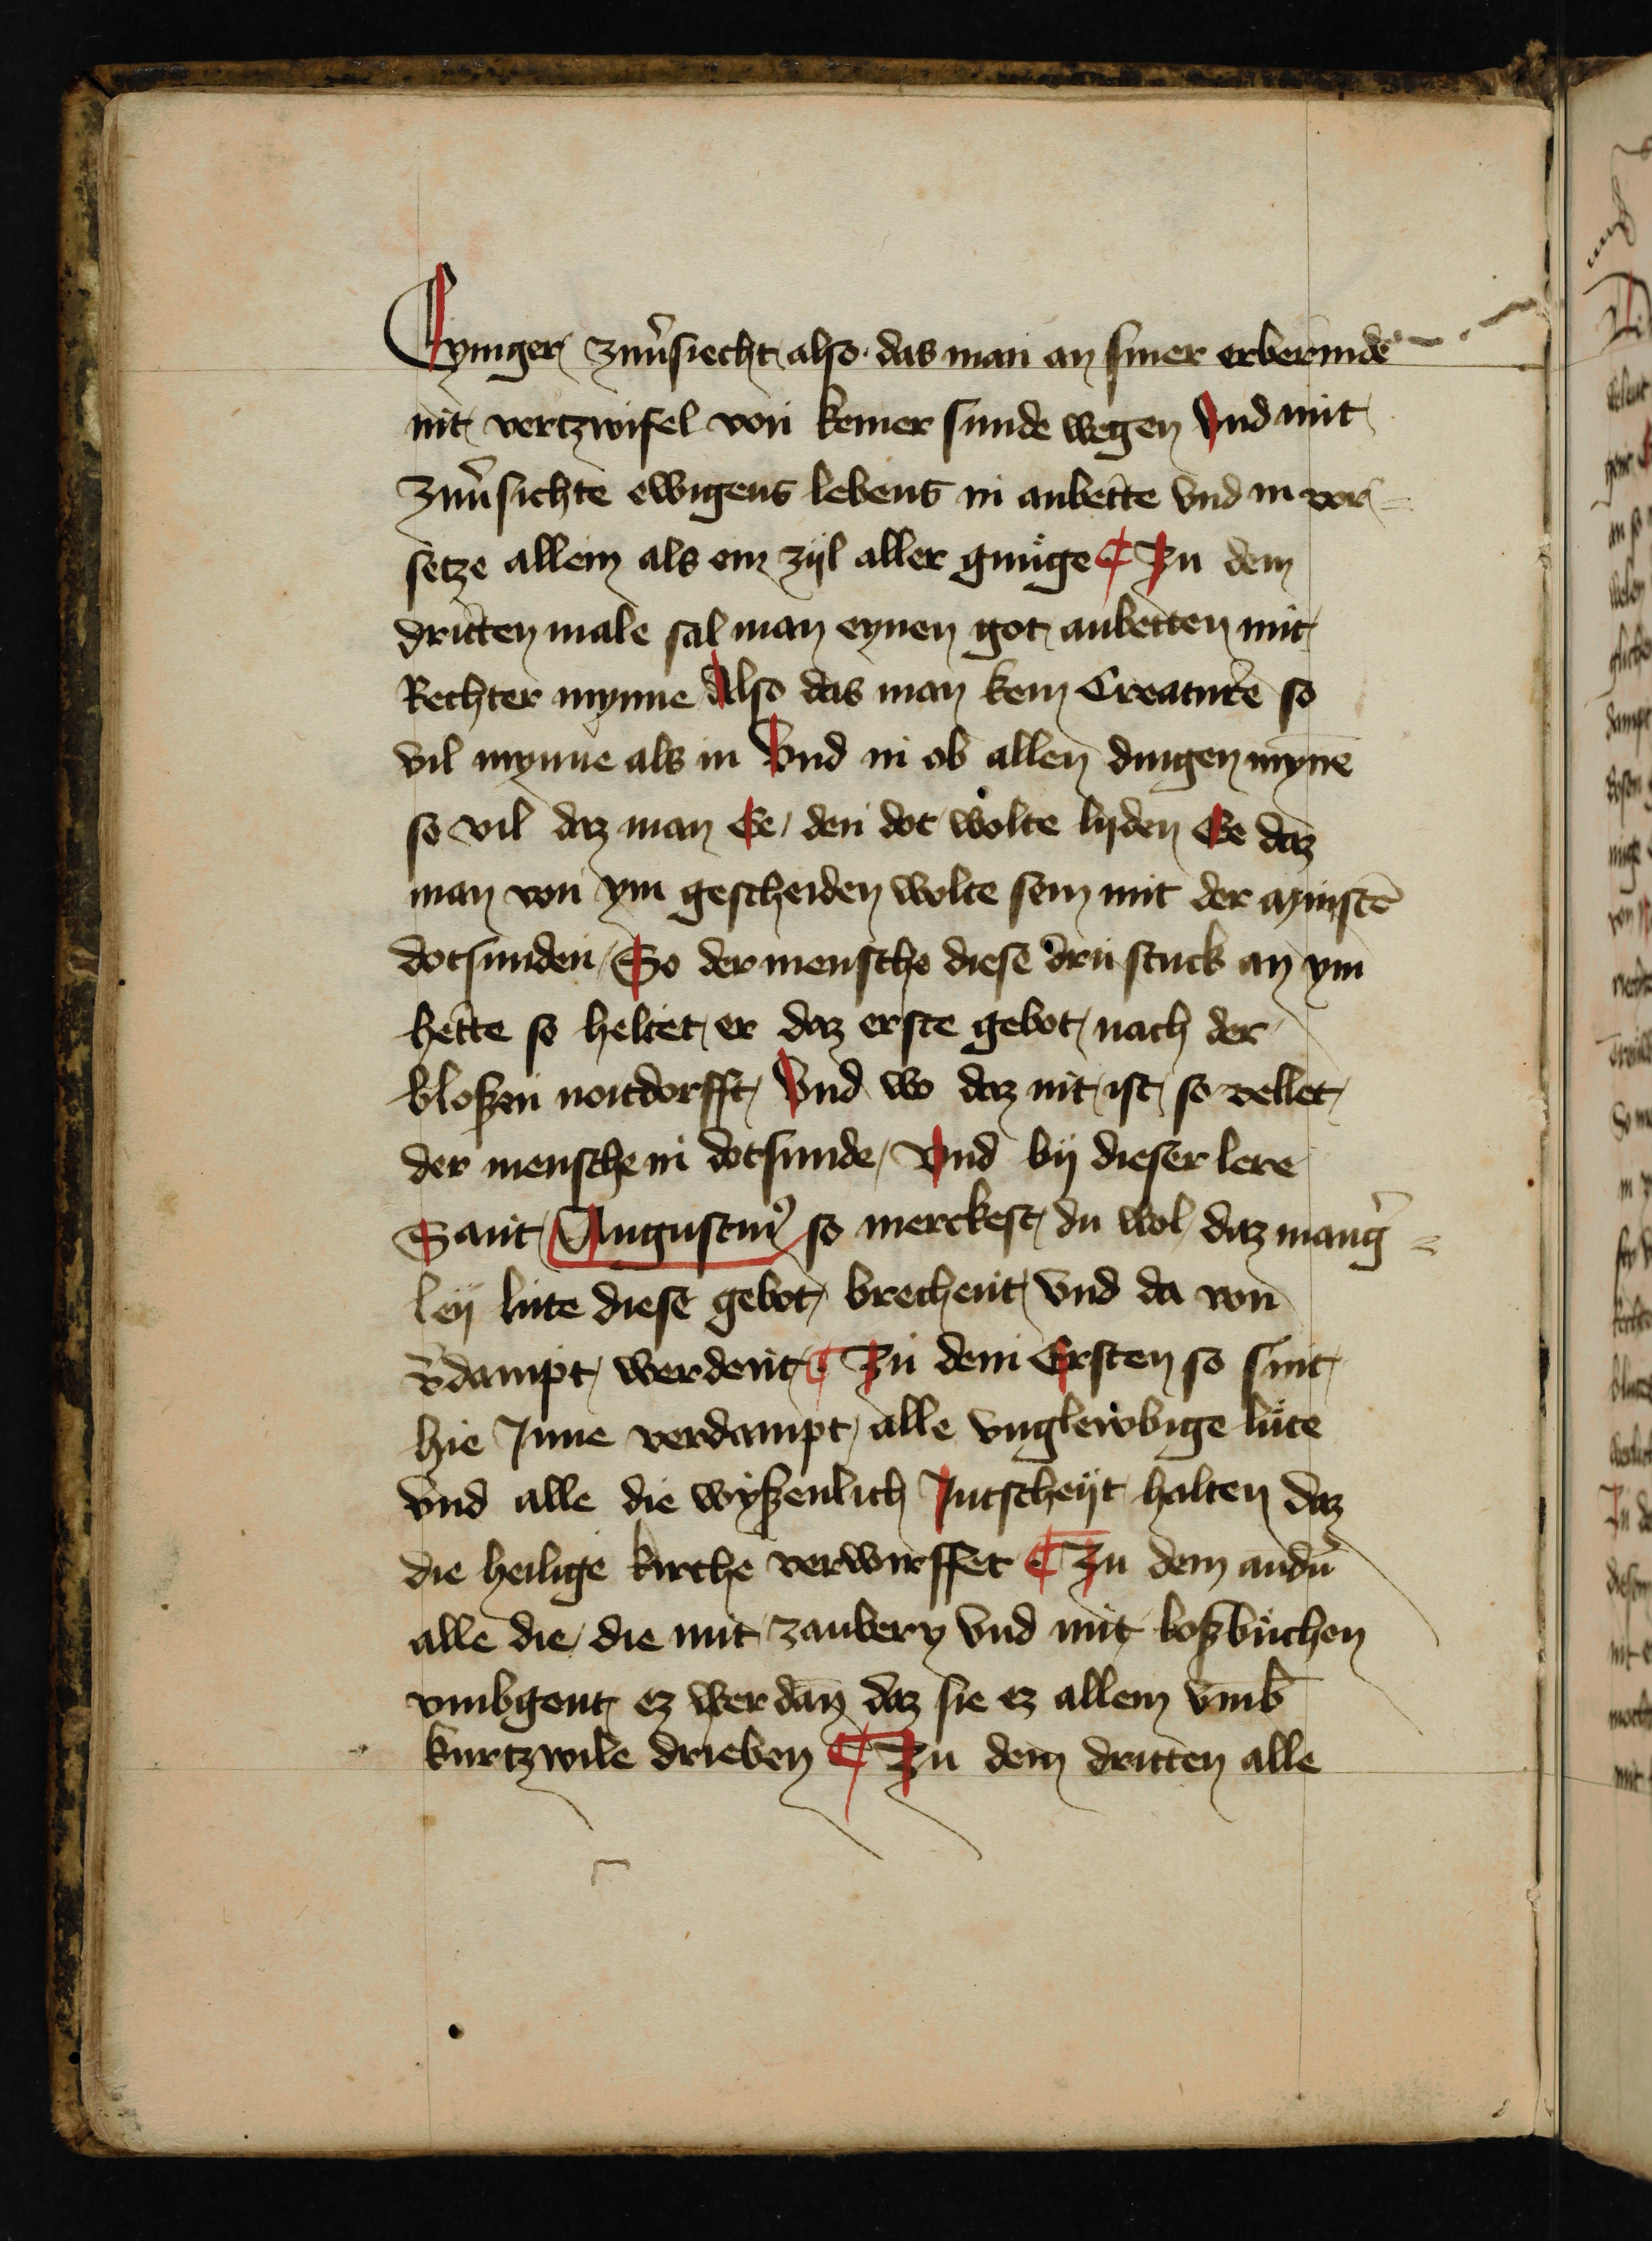 Eyniger zuu͛siecht also das man an siner erbermde
nit vertzwifel von keiner sunde wegen Vnd mit
zuu͛sichte ewigens lebens in anbette vnd in vor=
setze allein als ein zijl aller gnuge ¶ Zu dem
dritten male sal man eynen got anbetten mit
Rechter mynne Also das man kein Creature so
vil mynne als in Vnd in ob allen dingen mynē
so vil daz man Ee den dot wolte lyden Ee daz
man von ym gescheiden wolte sein mit der mynstē
dotsunden So der mensche diese dru stuck an ym
hette so heltet er daz erste gebot nach der
bloßen noitdorfft Vnd wo daz nit ist so vellet
der mensche in dotsunde Vnd by dieser lere
Sant Augustinꝰ so merckest du wol daz mang͛=
ley lute diese gebot brechent vnd da von
v͛dampt werdent ¶ Zu dem Ersten so sint
hie Inne verdampt alle vnglewbige lute
vnd alle die wyßenlich Jutscheyt halten daz
die heilige kirche verwirffet ¶ Zu dem andn͛
alle die die mit zaubery vnd mit loßbuchen
vmbgent ez wer dan̄ daz sie ez allein vmb
kurtzwile drieben ¶ Zu dem dritten alle